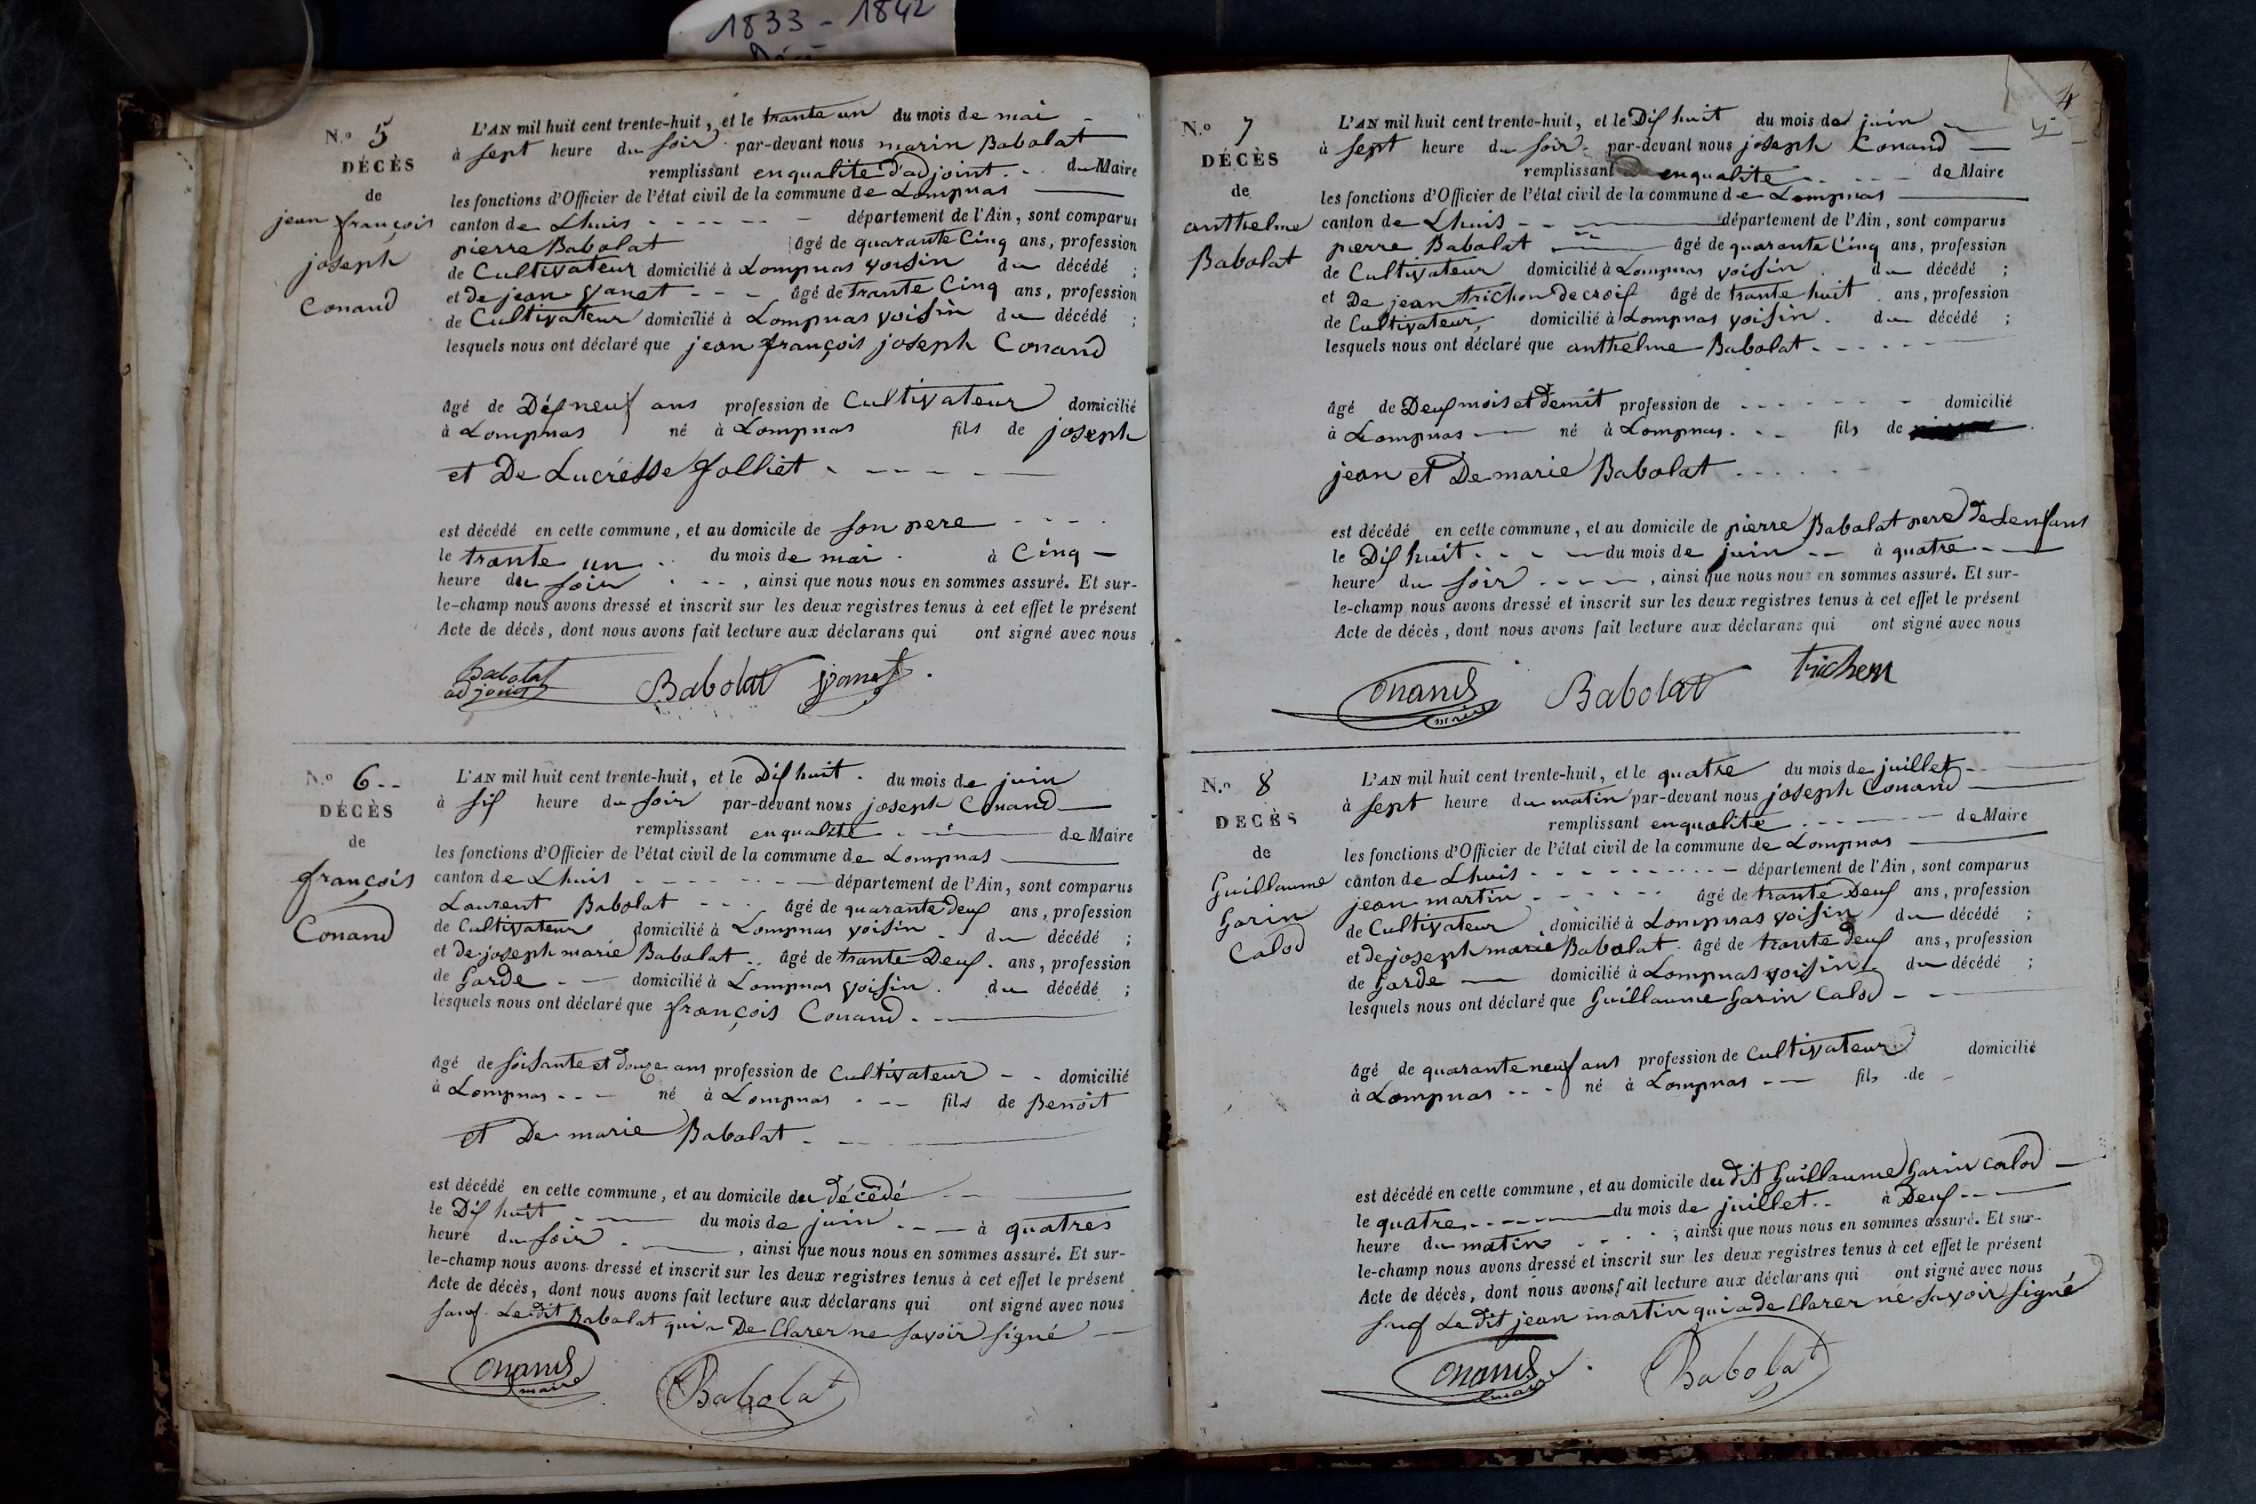 1833 - 1842
N.º 5
DÉCÈS
de
jean françois
joseph
Conand
L'AN mil huit cent trente-huit, et le trante un du mois de mai
à sept heure du soir par-devant nous marin Babolat
remplissant en qualite d'adjoint du Maire
les fonctions d'Officier de l'état civil de la commune de Lompnas
canton de Lhuis département de l'Ain, sont comparus
pierre Babolat âgé de quarante Cinq ans, profession
de Cultivateur domicilié à Lompnas voisin du décédé ;
et de jean yanet âgé de trante Cinq ans, profession
de Cultivateur domicilié à Lompnas voisin du décédé ;
lesquels nous ont déclaré que jean françois joseph Conand
âgé de Dis neuf ans profession de Cultivateur domicilié
à Lompnas né à Lompnas fils de joseph
et De Lucresse Jolliet
est décédé en cette commune, et au domicile de son pere
le trante un du mois de mai à Cinq
heure du soir, ainsi que nous nous en sommes assuré. Et sur-
le-champ nous avons dressé et inscrit sur les deux registres tenus à cet effet le présent
Acte de décès, dont nous avons fait lecture aux déclarans qui ont signé avec nous
Babolat Babolat yanet
adjoint
N.º 6
DÉCÈS
de
françois
Conand
L'AN mil huit cent trente-huit, et le Dis huit du mois de juin
à sis heure du soir par-devant nous joseph Conand
remplissant en qualité de Maire
les fonctions d'Officier de l'état civil de la commune de Lompnas
canton de Lhuis département de l'Ain, sont comparus
Laurent Babolat âgé de quarante deus ans, profession
de Cultivateur domicilié à Lompnas voisin du décédé ;
et de joseph marie Babolat âgé de trante Deus ans, profession
de Garde domicilié à Lompnas voisin du décédé ;
lesquels nous ont déclaré que françois Conand
âgé de soisante et douze ans profession de Cultivateur domicilié
à Lompnas né à Lompnas fils de Benoit
et De marie Babolat
est décédé en cette commune, et au domicile du décédé
le Dis huit du mois de juin à quatres
heure du soir, ainsi que nous nous en sommes assuré. Et sur-
le-champ nous avons dressé et inscrit sur les deux registres tenus à cet effet le présent
Acte de décès, dont nous avons fait lecture aux déclarans qui ont signé avec nous
sauf Le dit Babolat qui a De Clarer ne savoir signé
Conand Babolat
maire
4
N.º 7
DÉCÈS
de
anthelme
Babolat
L'AN mil huit cent trente-huit, et le Dis huit du mois de juin
à sept heure du soir par-devant nous joseph Conand
remplissant en qualite de Maire
les fonctions d'Officier de l'état civil de la commune de Lompnas
canton de Lhuis département de l'Ain, sont comparus
pierre Babolat âgé de quarante Cinq ans, profession
de Cultivateur domicilié à Lompnas voisin du décédé ;
et De jean trichon De crois âgé de trante huit ans, profession
de Cultivateur, domicilié à Lompnas voisin du décédé ;
lesquels nous ont déclaré que anthelme Babolat
âgé de Deus mois et demit profession de domicilié
à Lompnas né à Lompnas fils de
jean et De marie Babolat
est décédé en cette commune, et au domicile de pierre Babolat pere de Lenfant
le Dis huit du mois de juin à quatre
heure du soir, ainsi que nous nous en sommes assuré. Et sur-
le-champ nous avons dressé et inscrit sur les deux registres tenus à cet effet le présent
Acte de décès, dont nous avons fait lecture aux déclarans qui ont signé avec nous
Conand Babolat trichon
maire
N.º 8
DÉCÈS
de
Guillaume
Garin
Calod
L'AN mil huit cent trente-huit, et le quatre du mois de juillet
à sept heure du matin par-devant nous joseph Conand
remplissant en qualite de Maire
les fonctions d'Officier de l'état civil de la commune de Lompnas
canton de Lhuis département de l'Ain, sont comparus
jean martin âgé de trante Deus ans, profession
de Cultivateur domicilié à Lompnas voisin du décédé ;
et de joseph marie Babolat âgé de trante deus ans, profession
de Garde domicilié à Lompnas voisin du décédé ;
lesquels nous ont déclaré que Guillaume Garin Calod
âgé de quarante neuf ans profession de Cultivateur domicilié
à Lompnas né à Lompnas fils de
est décédé en cette commune, et au domicile du dit Guillaume Garin calod
le quatre du mois de juillet à Deus
heure du matin, ainsi que nous nous en sommes assuré. Et sur-
le-champ nous avons dressé et inscrit sur les deux registres tenus à cet effet le présent
Acte de décès, dont nous avons fait lecture aux déclarans qui ont signé avec nous
sauf Le dit jean martin qui a de Clarer ne savoir signé
Conand Babolat
maire